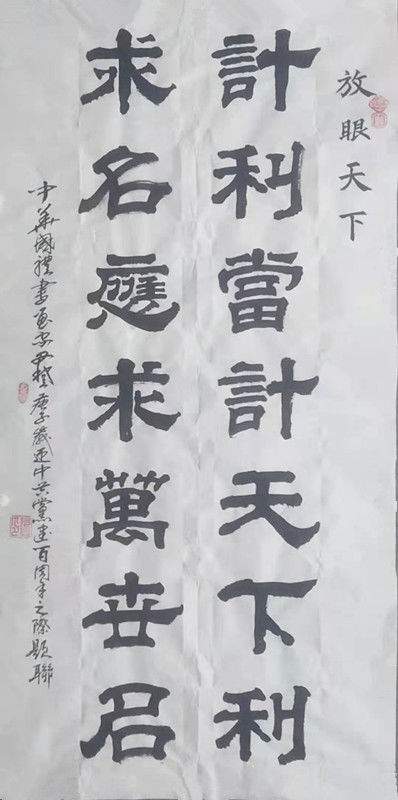 放眼天下
計利當計天下利
求名應求萬世名
中華國禮書画家尹 庚子歲迎中共黨建百周年之際題聯